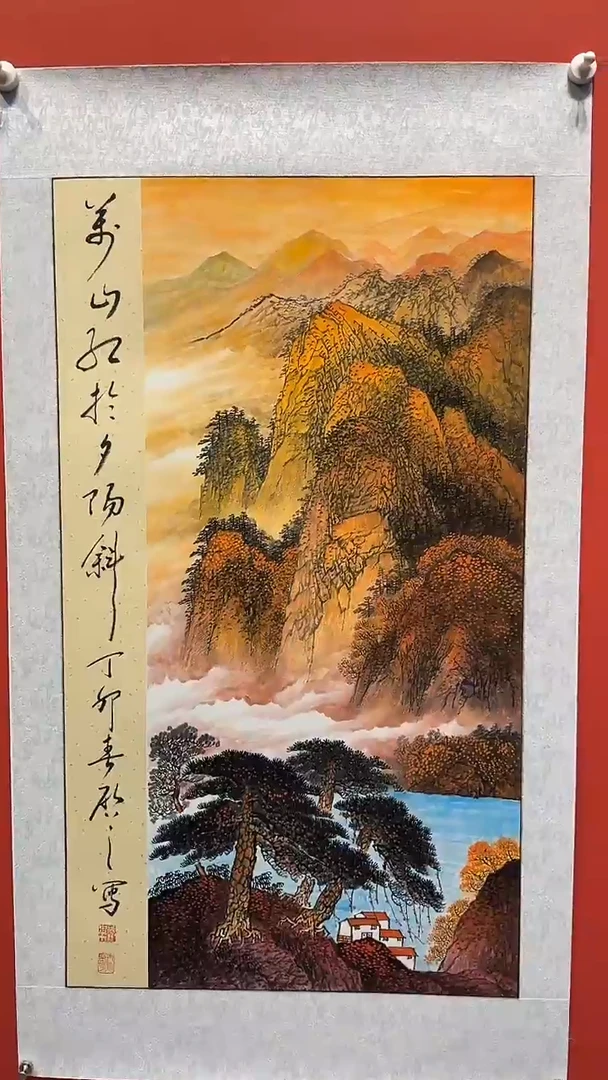 萬山紅於夕陽斜丁卯春啟之寫